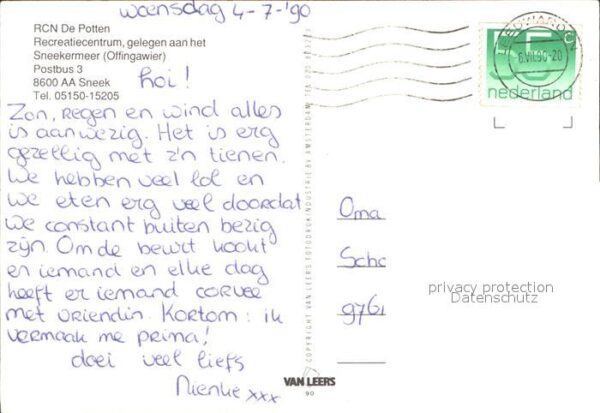 woensdag 4-7-'90
RCN De Potten
Recreatiecentrum, gelegen aan het
Sneekermeer (Offingawier)
Postbus 3
8600 AA Sneek
Tel. 05150-15205
hoi!
Zon, regen en wind alles
is aanwezig. Het is erg
gezellig met z'n tienen.
We hebben veel lol en
we eten erg veel doordat
we constant buiten bezig
zijn. Om de beurt kookt
er iemand en elke dag
heeft er iemand corvee
met vriendin. Kortom: ik
vermaak me prima!
doei veel liefs
Nienke xxx
55 c
nederland
LEEUWARDEN
6.VII.90-20
Oma
Scho
9761
privacy protection
Datenschutz
COPYRIGHT VAN LEERS FOTODRUKINDUSTRIE BV AMSTERDAM
VAN LEERS
90